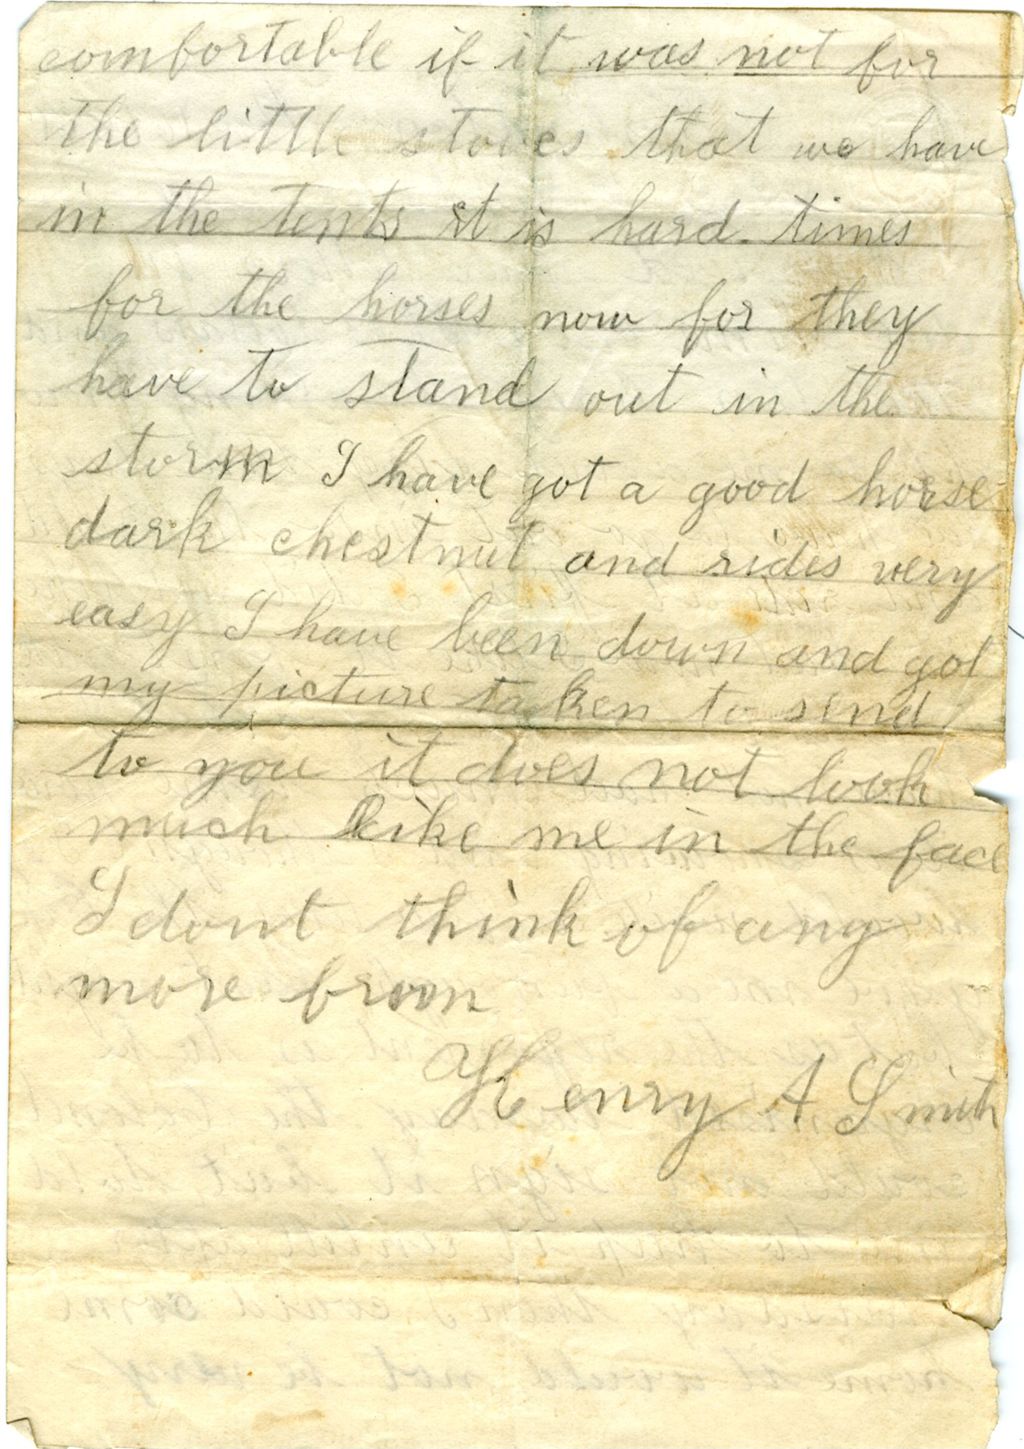 comfortable if it was not for
the little stoves that we have
in the tents it is hard times
for the horses now for they
have to stand out in the
storm I have got a good horse
dark chestnut and rides very
easy I have been down and got
my picture taken to send
to you it does not look
much like me in the face
I dont think of any
more from
Henry A Smith